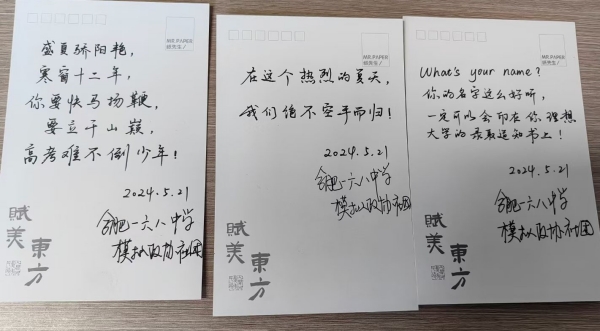 MR.PAPER
纸先生/
盛夏骄阳艳，
寒窗十二年，
你要快马扬鞭，
要立于山巅，
高考难不倒少年！
2024.5.21
合肥一六八中学
模拟政协社团
赋美
東方
MR.PAPER
纸先生/
在这个热烈的夏天，
我们绝不空手而归！
2024.5.21
合肥一六八中学
模拟政协社团
賦美
東方
MR.PAPER
纸先生/
What's your name?
你的名字这么好听，
一定可以会印在你理想
大学的录取通知书上！
2024.5.21
合肥一六八中学
模拟政协社团
賦美
東方